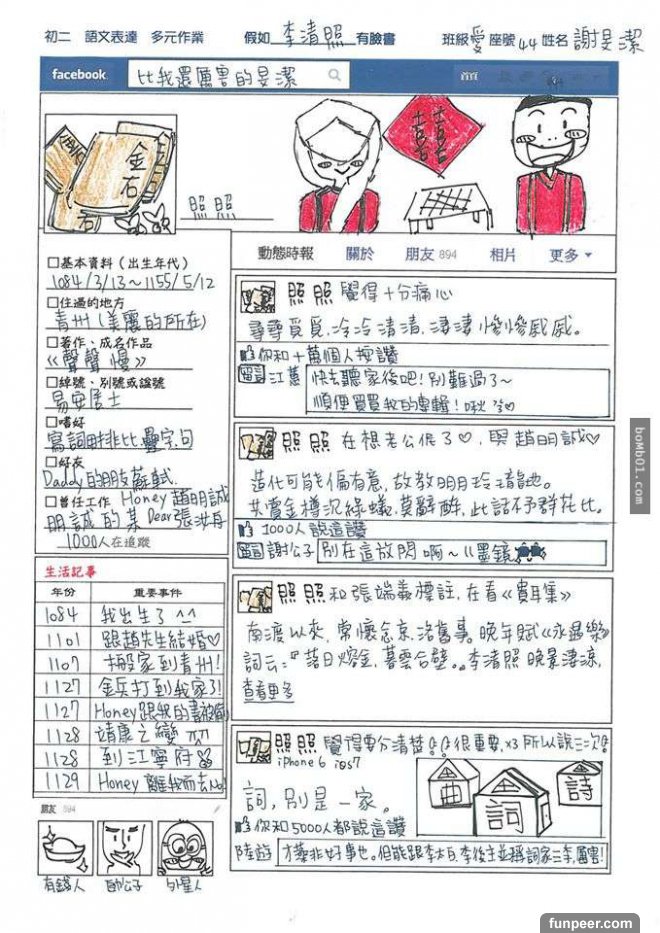 初二 語文表達 多元作業 假如 李清照 有臉書 班級 愛 座號 44 姓名 謝旻潔
facebook 比我還厲害的旻潔 首頁
金石
照照
囍
動態時報 關於 朋友 894 相片 更多
□基本資料（出生年代）
1084/3/13~1155/5/12
□住過的地方
青州(美麗的所在)
□著作、成名作品
《聲聲慢》
□綽號、別號或謚號
易安居士
□嗜好
寫詞畔排比.疊字.句
□好友
Daddy的朋友蘇軾.
□曾任工作 Honey 趙明誠
明誠的某 Dear張汝舟
1000人在追蹤
生活記事
年份 重要事件
1084 我出生了^^
1101 跟趙先生結婚♡
1107 搬家到青州!
1127 金兵打到我家了!
1127 Honey跟我的書被偷
1128 靖康之變
1128 到江寧府
1129 Honey 離我而去No!
朋友 894
有錢人 帥公子 外星人
照照 覺得十分痛心
尋尋覓覓.冷冷清清.淒淒慘慘戚戚。
你和十萬個人按讚
留言 江蕙 快去聽家後吧!別難過了~
順便買買我的專輯!啾
照照 在想老公低了♡,與趙明誠♡
造化可能偏有意,故教明月玲瓏地。
共賞金樽沉綠蟻,莫辭醉,此話不予群花比。
1000人說這讚
留言 謝公子 別在這放閃啊~((墨鏡
照照 和張端義標註,在看《貴耳集》
南渡以來,常懷念京.洛舊事。晚年賦《永遇樂》
詞云:『落日熔金,暮雲合壁。』李清照 晚景淒涼,
查看更多
照照 覺得要分清楚!!很重要.x3 所以說三次!
iPhone6 ios7
詞,別是一家。
曲 詞 詩
你和5000人都說這讚
陸遊 才藻非好事也。但能跟李太白.李後主並稱詞家三李,厲害!
bomb01.com
funpeer.com